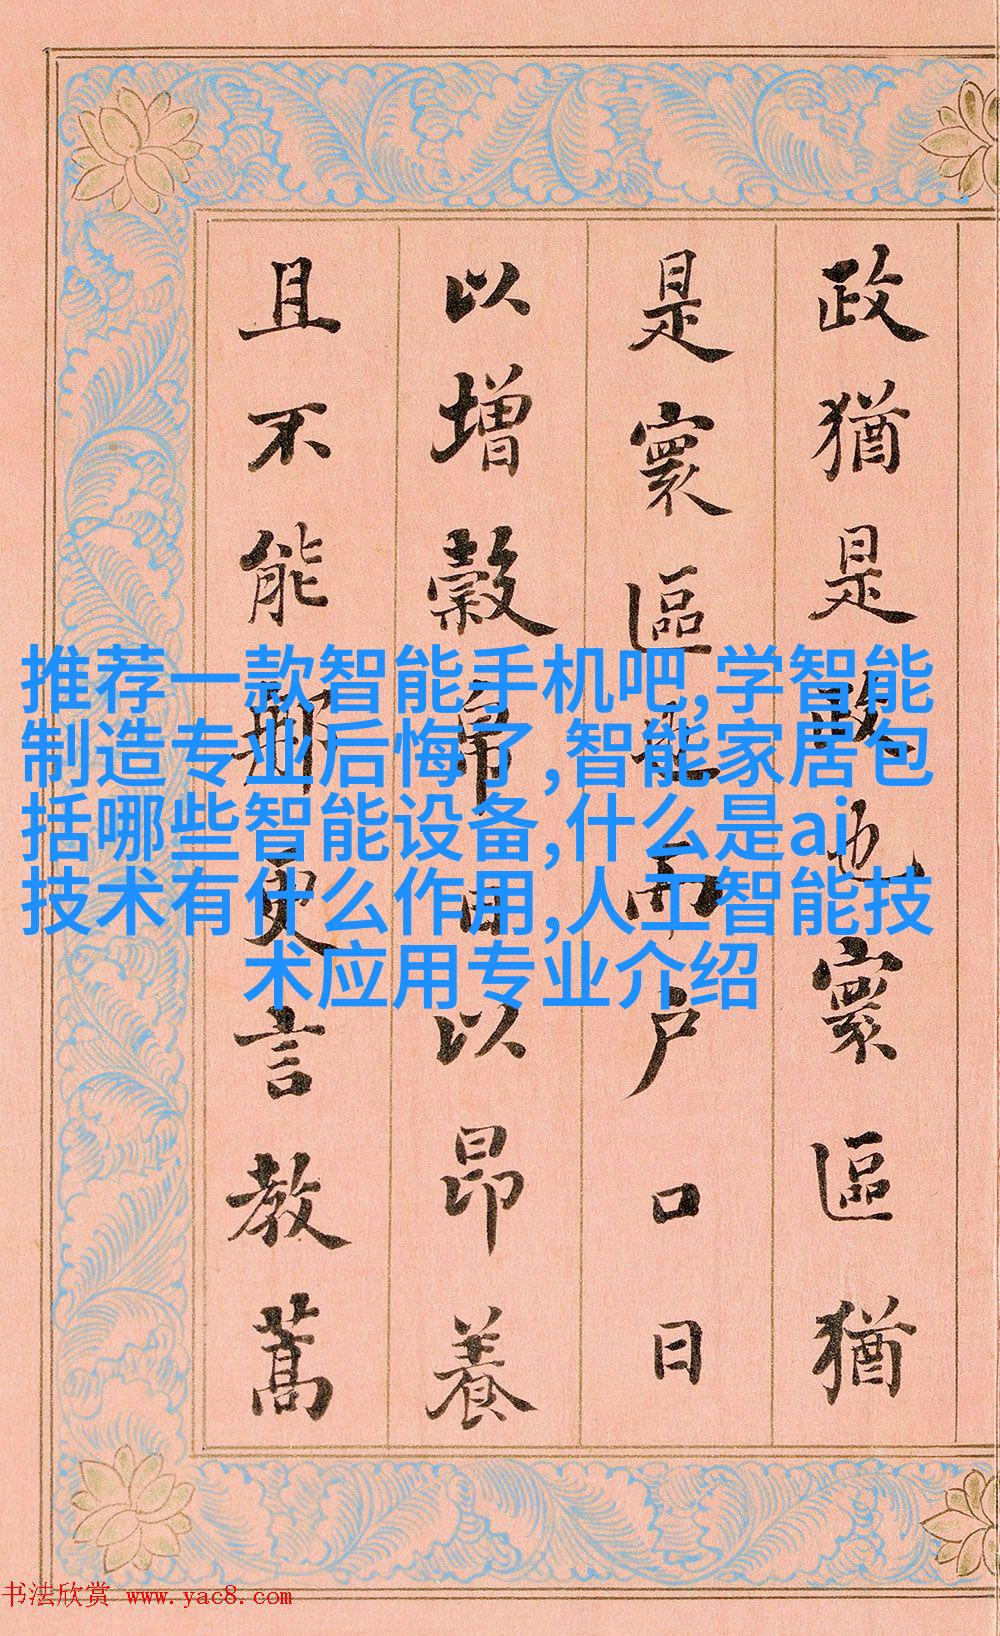 政猶是政也寰區猶
是寰區也而戶口日
以增穀帛日以昂養
且不能那更言教蒿
推荐一款智能手机吧,学智能
制造专业后悔了,智能家居包
括哪些智能设备,什么是ai
技术有什么作用,人工智能技
术应用专业介绍
书法欣赏 www.yac8.com